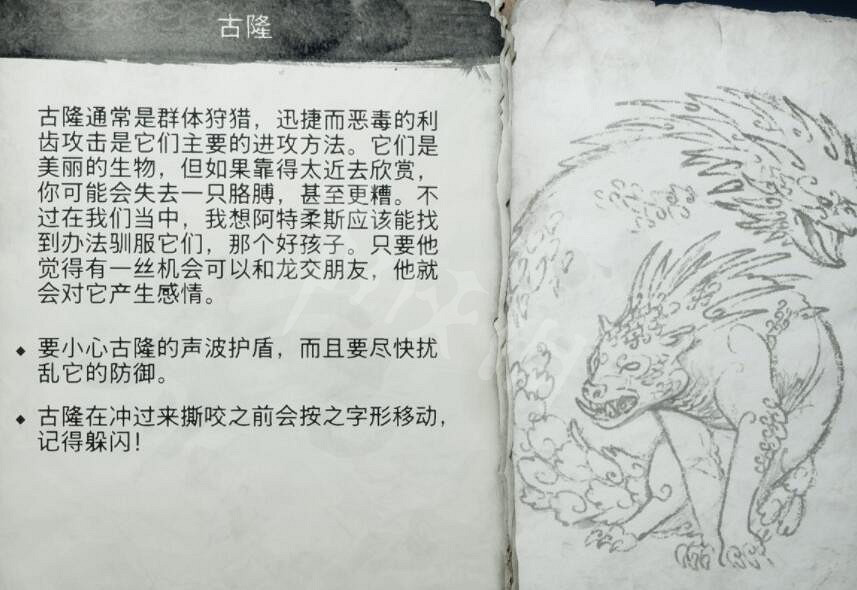 古隆
古隆通常是群体狩猎，迅捷而恶毒的利
齿攻击是它们主要的进攻方法。它们是
美丽的生物，但如果靠得太近去欣赏，
你可能会失去一只胳膊，甚至更糟。不
过在我们当中，我想阿特柔斯应该能找
到办法驯服它们，那个好孩子。只要他
觉得有一丝机会可以和龙交朋友，他就
会对它产生感情。
◆ 要小心古隆的声波护盾，而且要尽快扰
乱它的防御。
◆ 古隆在冲过来撕咬之前会按之字形移动，
记得躲闪！